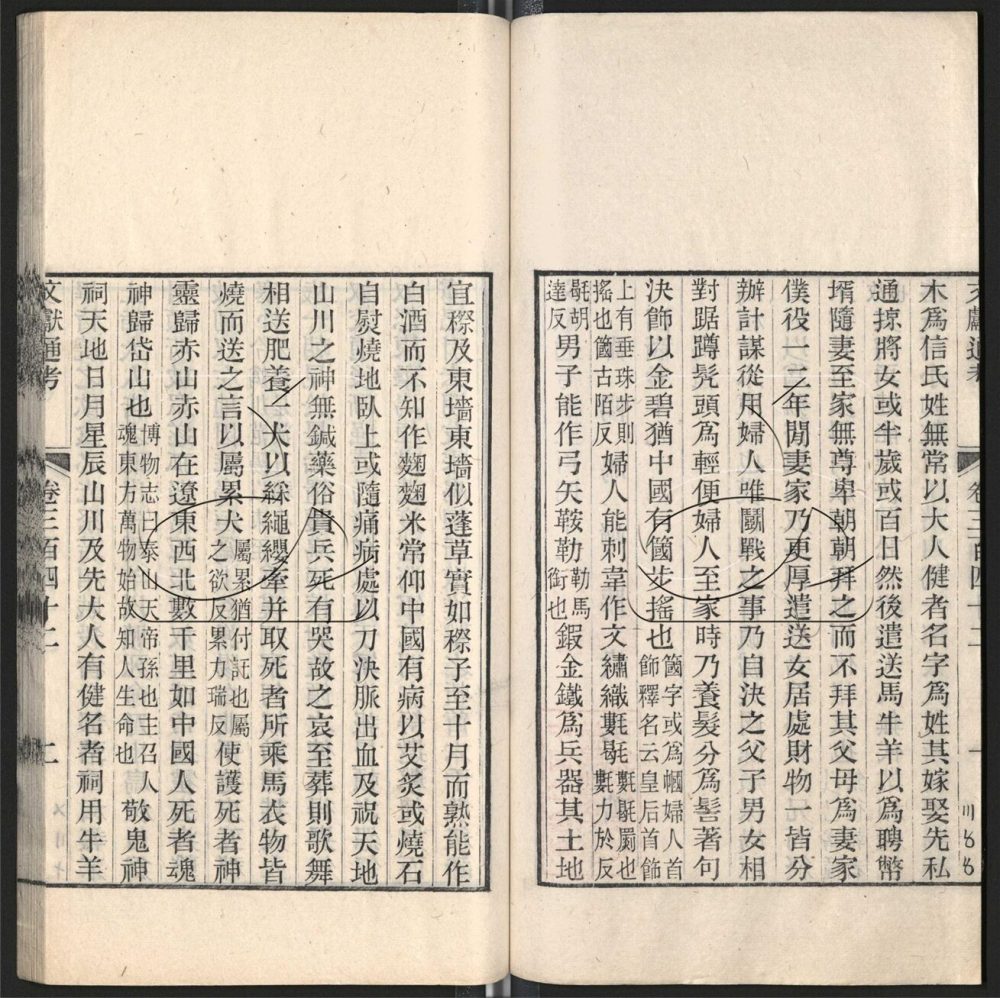 文獻通考 卷三百四十二 一
木爲信氏姓無常以大人健者名字爲姓其嫁娶先私
通掠將女或半歲或百日然後遣送馬牛羊以爲聘幣
壻隨妻至家無尊卑朝朝拜之而不拜其父母爲妻家
僕役一二年閒妻家乃更厚遣送女居處財物一皆分
辦計謀從用婦人唯鬭戰之事乃自決之父子男女相
對踞蹲髡頭爲輕便婦人至家時乃養髮分爲髻著句
決飾以金碧猶中國有簂步搖也簂字或爲幗婦人首
飾釋名云皇后首飾
上有垂珠步則
搖也簂古陌反婦人能刺韋作文繡織氀毼氀毼罽也
氀力於反
毼胡
達反男子能作弓矢鞍勒勒馬
銜也鍜金鐵爲兵器其土地
宜穄及東墻東墻似蓬草實如穄子至十月而熟能作
白酒而不知作麴麴米常仰中國有病以艾炙或燒石
自熨燒地臥上或隨痛病處以刀決脈出血及祝天地
山川之神無鍼藥俗貴兵死有哭故之哀至葬則歌舞
相送肥養一犬以綵繩纓牽并取死者所乘馬衣物皆
燒而送之言以屬累犬屬累猶付託也屬
之欲反累力瑞反使護死者神
靈歸赤山赤山在遼東西北數千里如中國人死者魂
神歸岱山也博物志曰泰山天帝孫也主召人
魂東方萬物始故知人生命也敬鬼神
祠天地日月星辰山川及先大人有健名者祠用牛羊
文獻通考 卷三百四十二 二